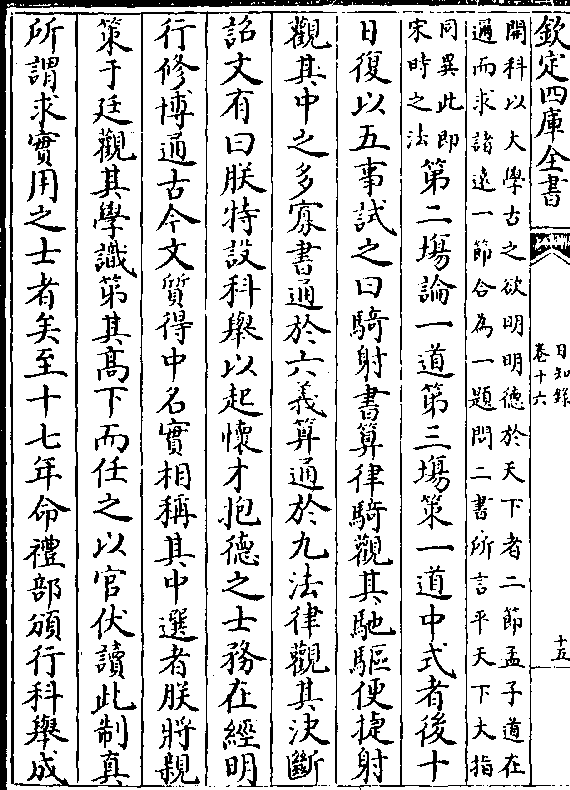 欽定四庫全書
日知錄
卷十六
十五
開科以大學古之欲明明德於天下者二節孟子道在
邇而求諸遠一節合為一題問二書所言平天下大指
同異此即
宋時之法
第二塲論一道第三塲策一道中式者後十
日復以五事試之曰騎射書算律騎觀其馳驅便捷射
觀其中之多寡書通於六義算通於九法律觀其決斷
詔文有曰朕特設科舉以起懷才抱德之士務在經明
行修博通古今文質得中名實相稱其中選者朕將親
策于廷觀其學識第其髙下而任之以官伏讀此制真
所謂求實用之士者矣至十七年命禮部頒行科舉成